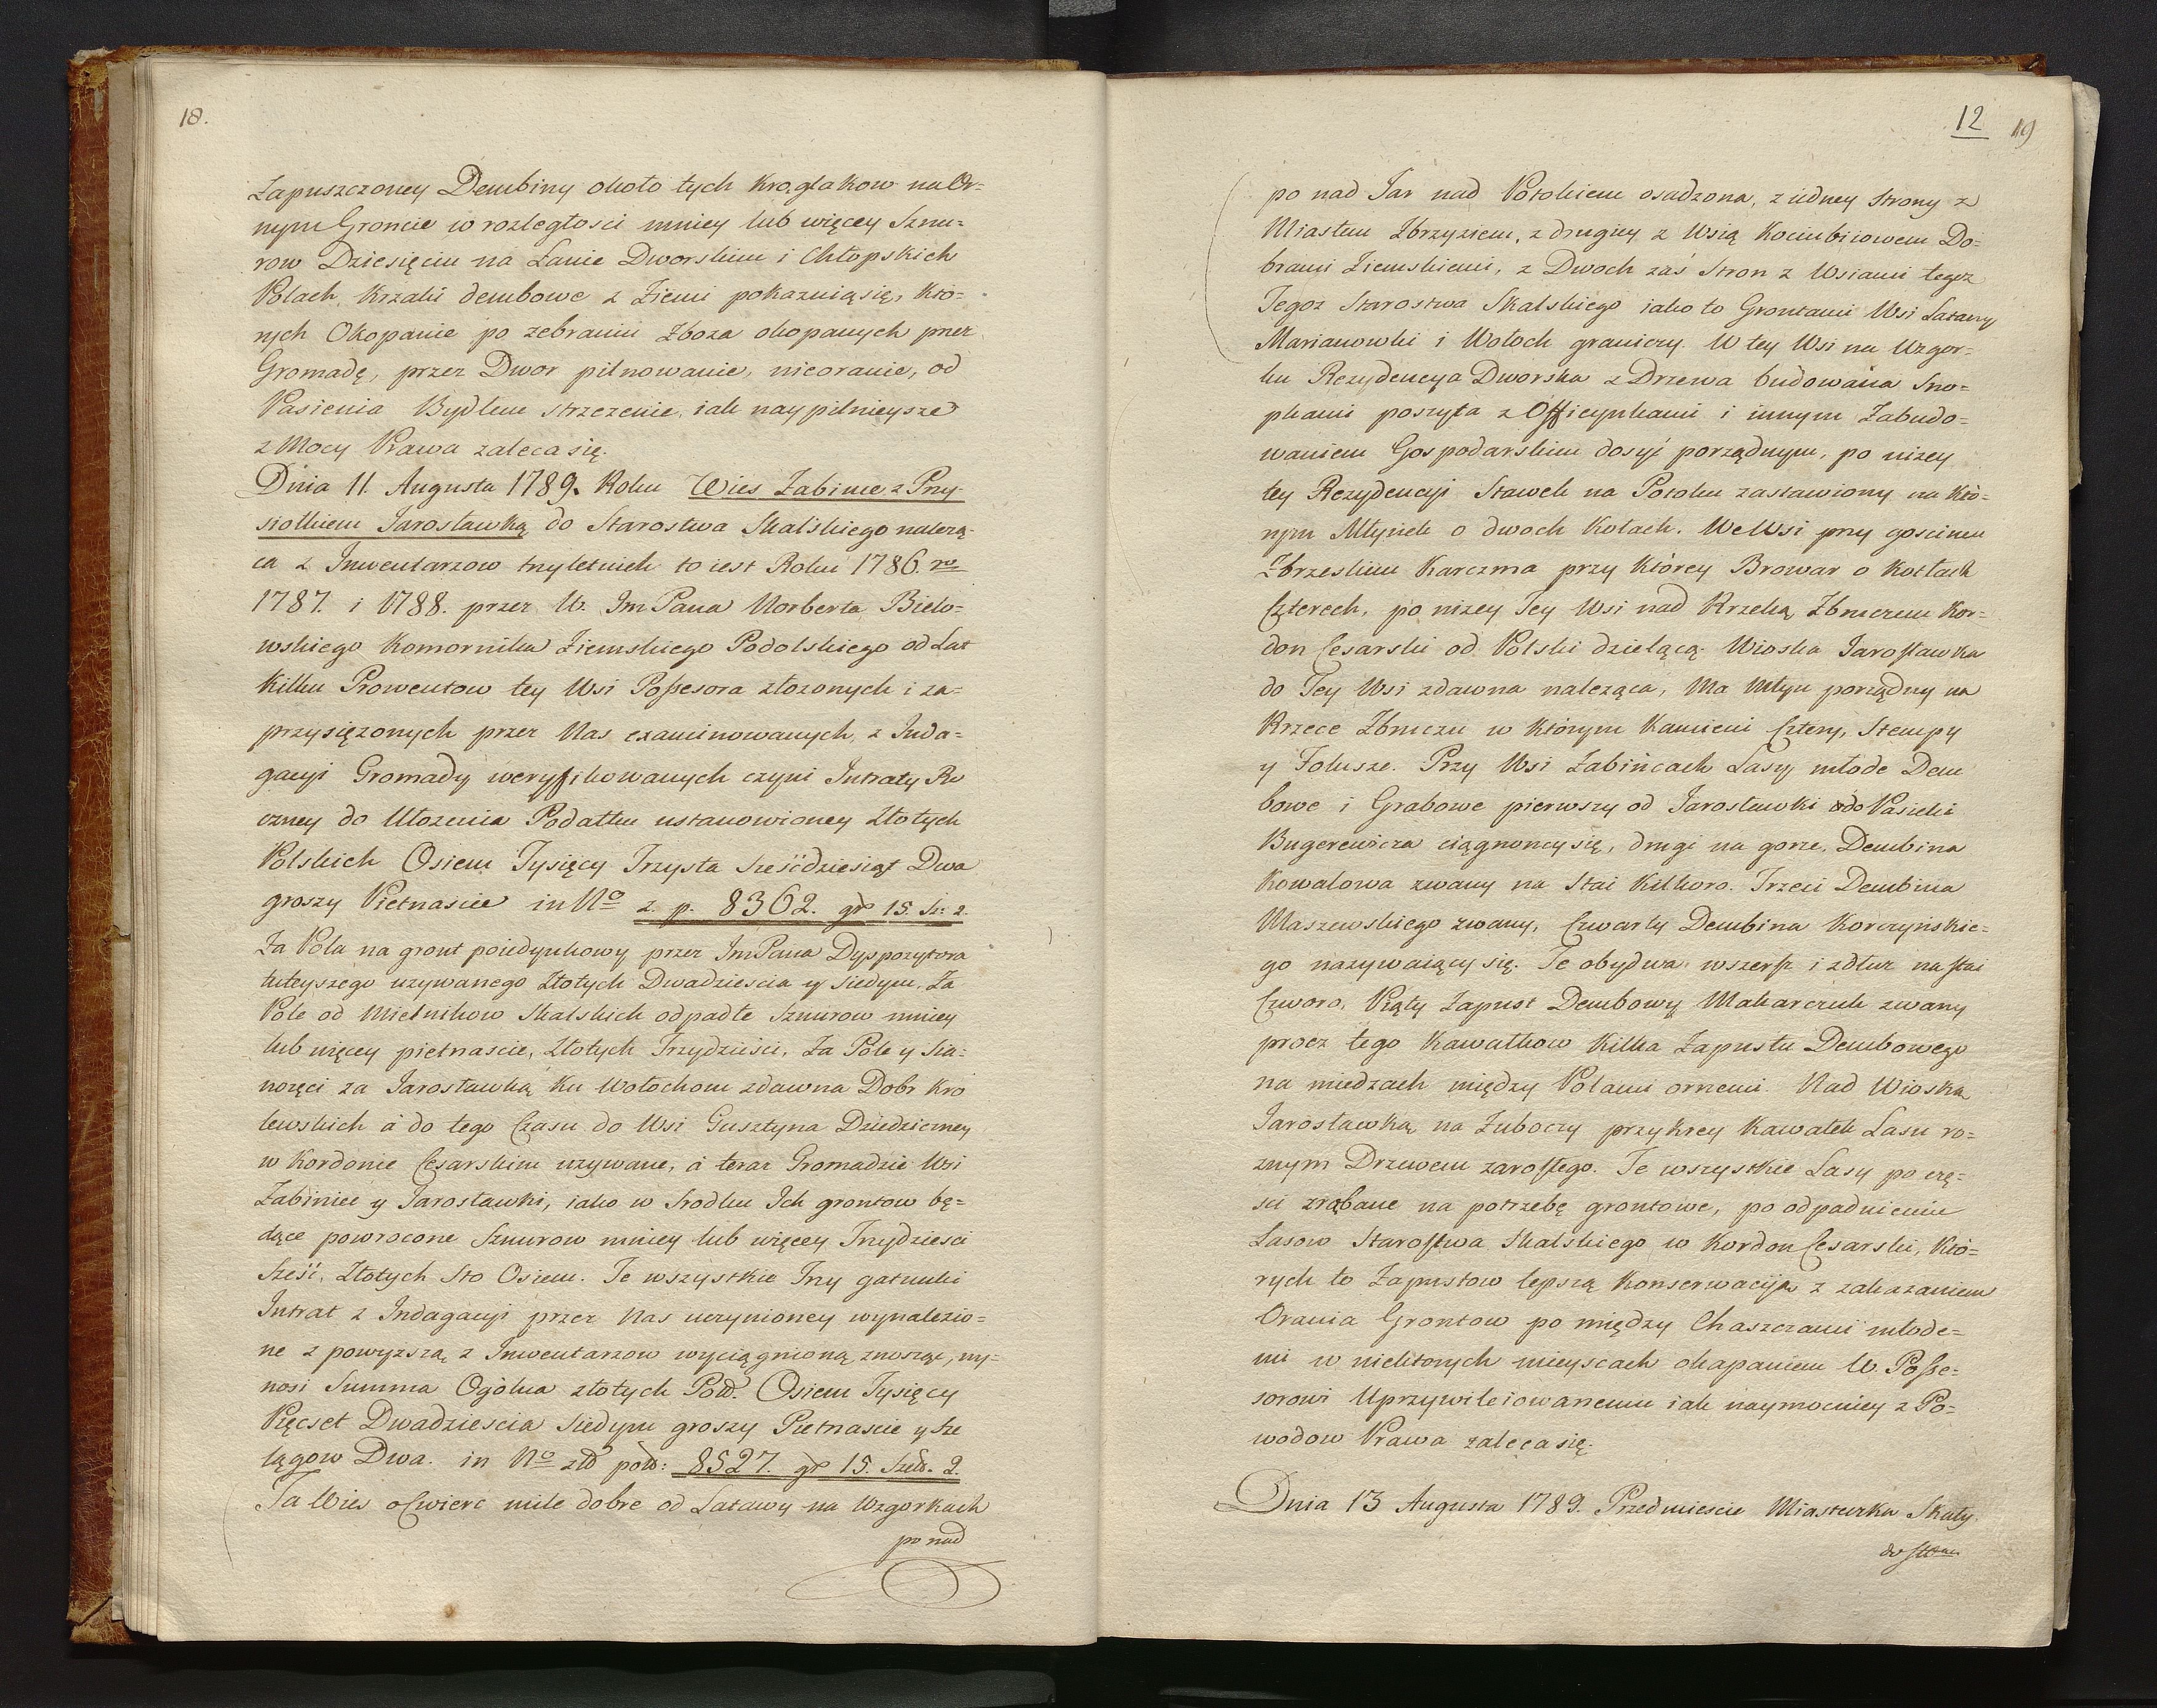 18.
Zapuszczoney Dembiny około tych Krąglakow na Or-
nym Groncie w rozległosci mniey lub więcey Sznu-
row Dziesięciu na Łanie Dworskim i Chłopskich
Polach Krzaki dembowe z Ziemi pokazuią się, Któ-
rych Okopanie po zebraniu Zboza okopanych przez
Gromadę, przez Dwor pilnowanie, nieoranie, od
Pasienia Bydłem strzezenie, iak naypilnieysze
z Mocy Prawa zaleca się.
Dnia 11. Augusta 1789. Roku Wies Zabince z Przy-
siołkiem Jarosławką do Starostwa Skalskiego nalezą-
ca z Inwentarzow trzyletnich to iest Roku 1786. go
1787. i 1788. przez W. Jm Pana Norberta Bielo-
wskiego Komornika Ziemskiego Podolskiego od Lat
Kilku Prowentow tey Wsi Possesora złozonych i za-
przysięzonych przez Nas examinowanych, z Inda-
gacyi Gromady weryfikowanych czyni Intraty Ro
czney do Ułozenia Podatku ustanowioney Złotych
Polskich Osiem Tysięcy Trzysta Sześćdziesiąt Dwa
groszy Pietnascie in No z. p. 8362. gr 15. Sz: 2.
Za Pola na gront poiedynkowy przez Jm Pana Dyspozytora
tuteyszego uzywanego Złotych Dwadziescia y Siedym, Za
Pole od Mielnikow Skalskich odpadłe Sznurow mniey
lub więcey pietnascie, Złotych Trzydziesci, Za Pole y Sia-
nozęci za Jarosławką Ku Wołochom zdawna Dobr Kro
lewskich á do tego Czasu do Wsi Gusztyna Dziedziczney
w Kordonie Cesarskim uzywane, á teraz Gromadzie Wsi
Zabiniec y Jarosławki, iako w Srodku Ich grontow bę-
dące powrocone Sznurow mniey lub więcey Trzydziesci
Sześć, Złotych Sto Osiem. Te wszystkie Trzy gatunki
Intrat z Indagacyi przez Nas uczynioney wynalezio-
ne z powyzszą z Inwentarzow wyciągnioną znosząc, wy-
nosi Summa Ogólna złotych Pols. Osiem Tysięcy
Pięcset Dwadziescia Siedym groszy Pietnascie y Sze
lągow Dwa. in No złt pols: 8527. gr 15. Szel. 2.
Ta Wies o Cwierc mile dobre od Latawy na Wzgorkach
po nad
12 19
po nad Jar nad Potokiem osadzona, z iedney Strony z
Miastem Zbrzyziem, z drugiey z Wsią Kociubiiowem Do-
brami Ziemskiemi, z Dwoch zaś Stron z Wsiami tegoz
Tegoz Starostwa Skalskiego iako to Grontami Wsi Latawy
Marianowki i Wołoch graniczy. W tey Wsi na Wzgor-
ku Rezydencya Dworska z Drzewa budowana Sno-
pkami poszyta z Officynkami i innym Zabudo-
waniem Gospodarskim dosyć porządnym, po nizey
tey Rezydencyi Stawek na Potoku zastawiony na Któ-
rym Młynek o dwoch Kołach. We Wsi przy goscincu
Zbrzeskim Karczma przy Którey Browar o Kotłach
Czterech, po nizey Tey Wsi nad Rrzeką Zbruczem Kor-
don Cesarski od Polski dzielącą. Wioska Jarosławka
do Tey Wsi zdawna naleząca, Ma Młyn porządny na
Rrzece Zbruczu w Którym Kamieni Cztery, Stempy
y Folusze. Przy Wsi Zabińcach Lasy młode Dem
bowe i Grabowe pierwszy od Jarosławki do Pasieki
Bugerewicza ciągnoncy się, drugi na gorze, Dembina
Kowalowa zwany na Stai Kilkoro. Trzeci Dembina
Maszewskiego zwany, Czwarty Dembina Korczyńskie-
go nazywaiący się. Te obydwa wszersz i zdłuz na stai
Czworo, Piąty Zapust Dembowy Makarczuk zwany
procz tego Kawałkow Kilka Zapustu Dembowego
na miedzach między Polami ornemi. Nad Wioską
Jarosławką na Zuboczy przykrey Kawałek Lasu ro-
znym Drzewem zarosłego. Te wszystkie Lasy po czę-
sci zrąbane na potrzebę grontowe, po odpadnieniu
Lasow Starostwa Skalskiego w Kordon Cesarski, Któ-
rych to Zapustow lepszą Konserwacyą z zakazaniem
Orania Grontow po między Chaszczami młode-
mi w niektorych mieyscach okapaniem W. Posse-
sorowi Uprzywileiowanemu iak naymocniey z Po-
wodow Prawa zaleca się.
Dnia 13 Augusta 1789. Przedmiescie Miasteczka Skały.
do